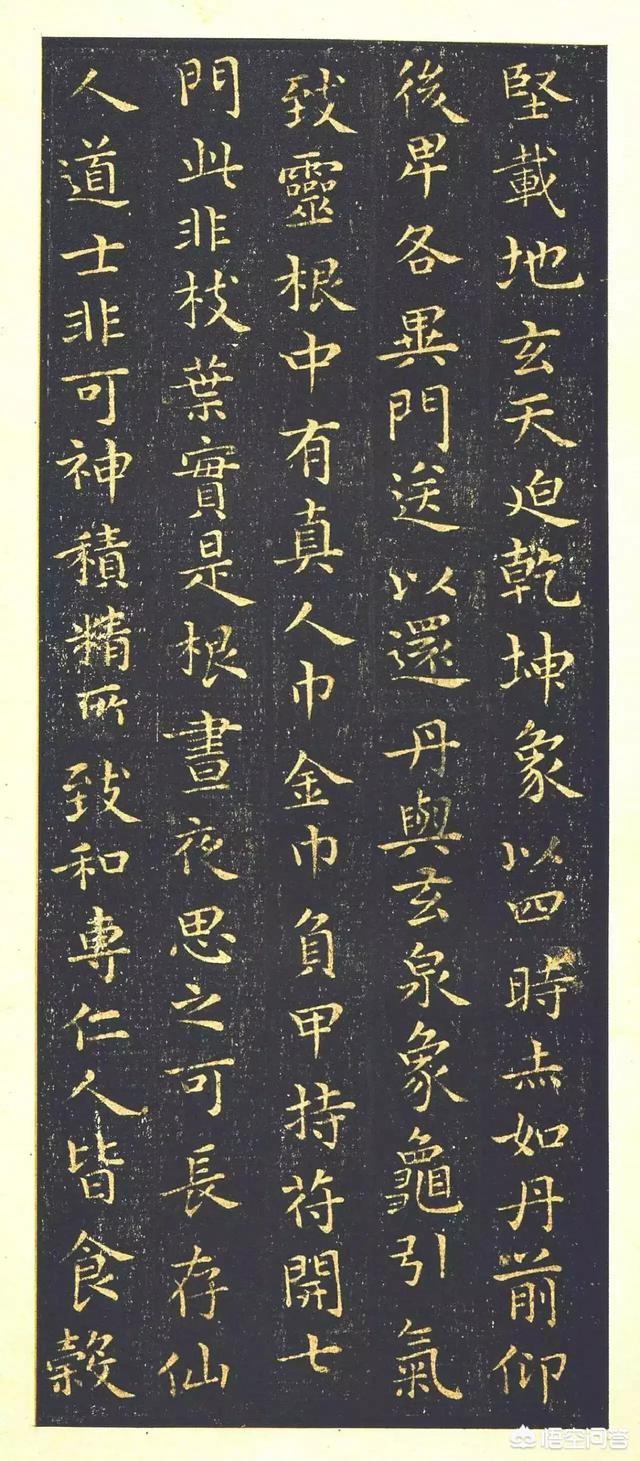 堅載地玄天迫乾坤象以四時赤如丹前仰
後卑各異門送以還丹與玄泉象龜引氣
致靈根中有真人巾金巾負甲持符開七
門此非枝葉實是根晝夜思之可長存仙
人道士非可神積精所致和專仁人皆食穀
悟空问答